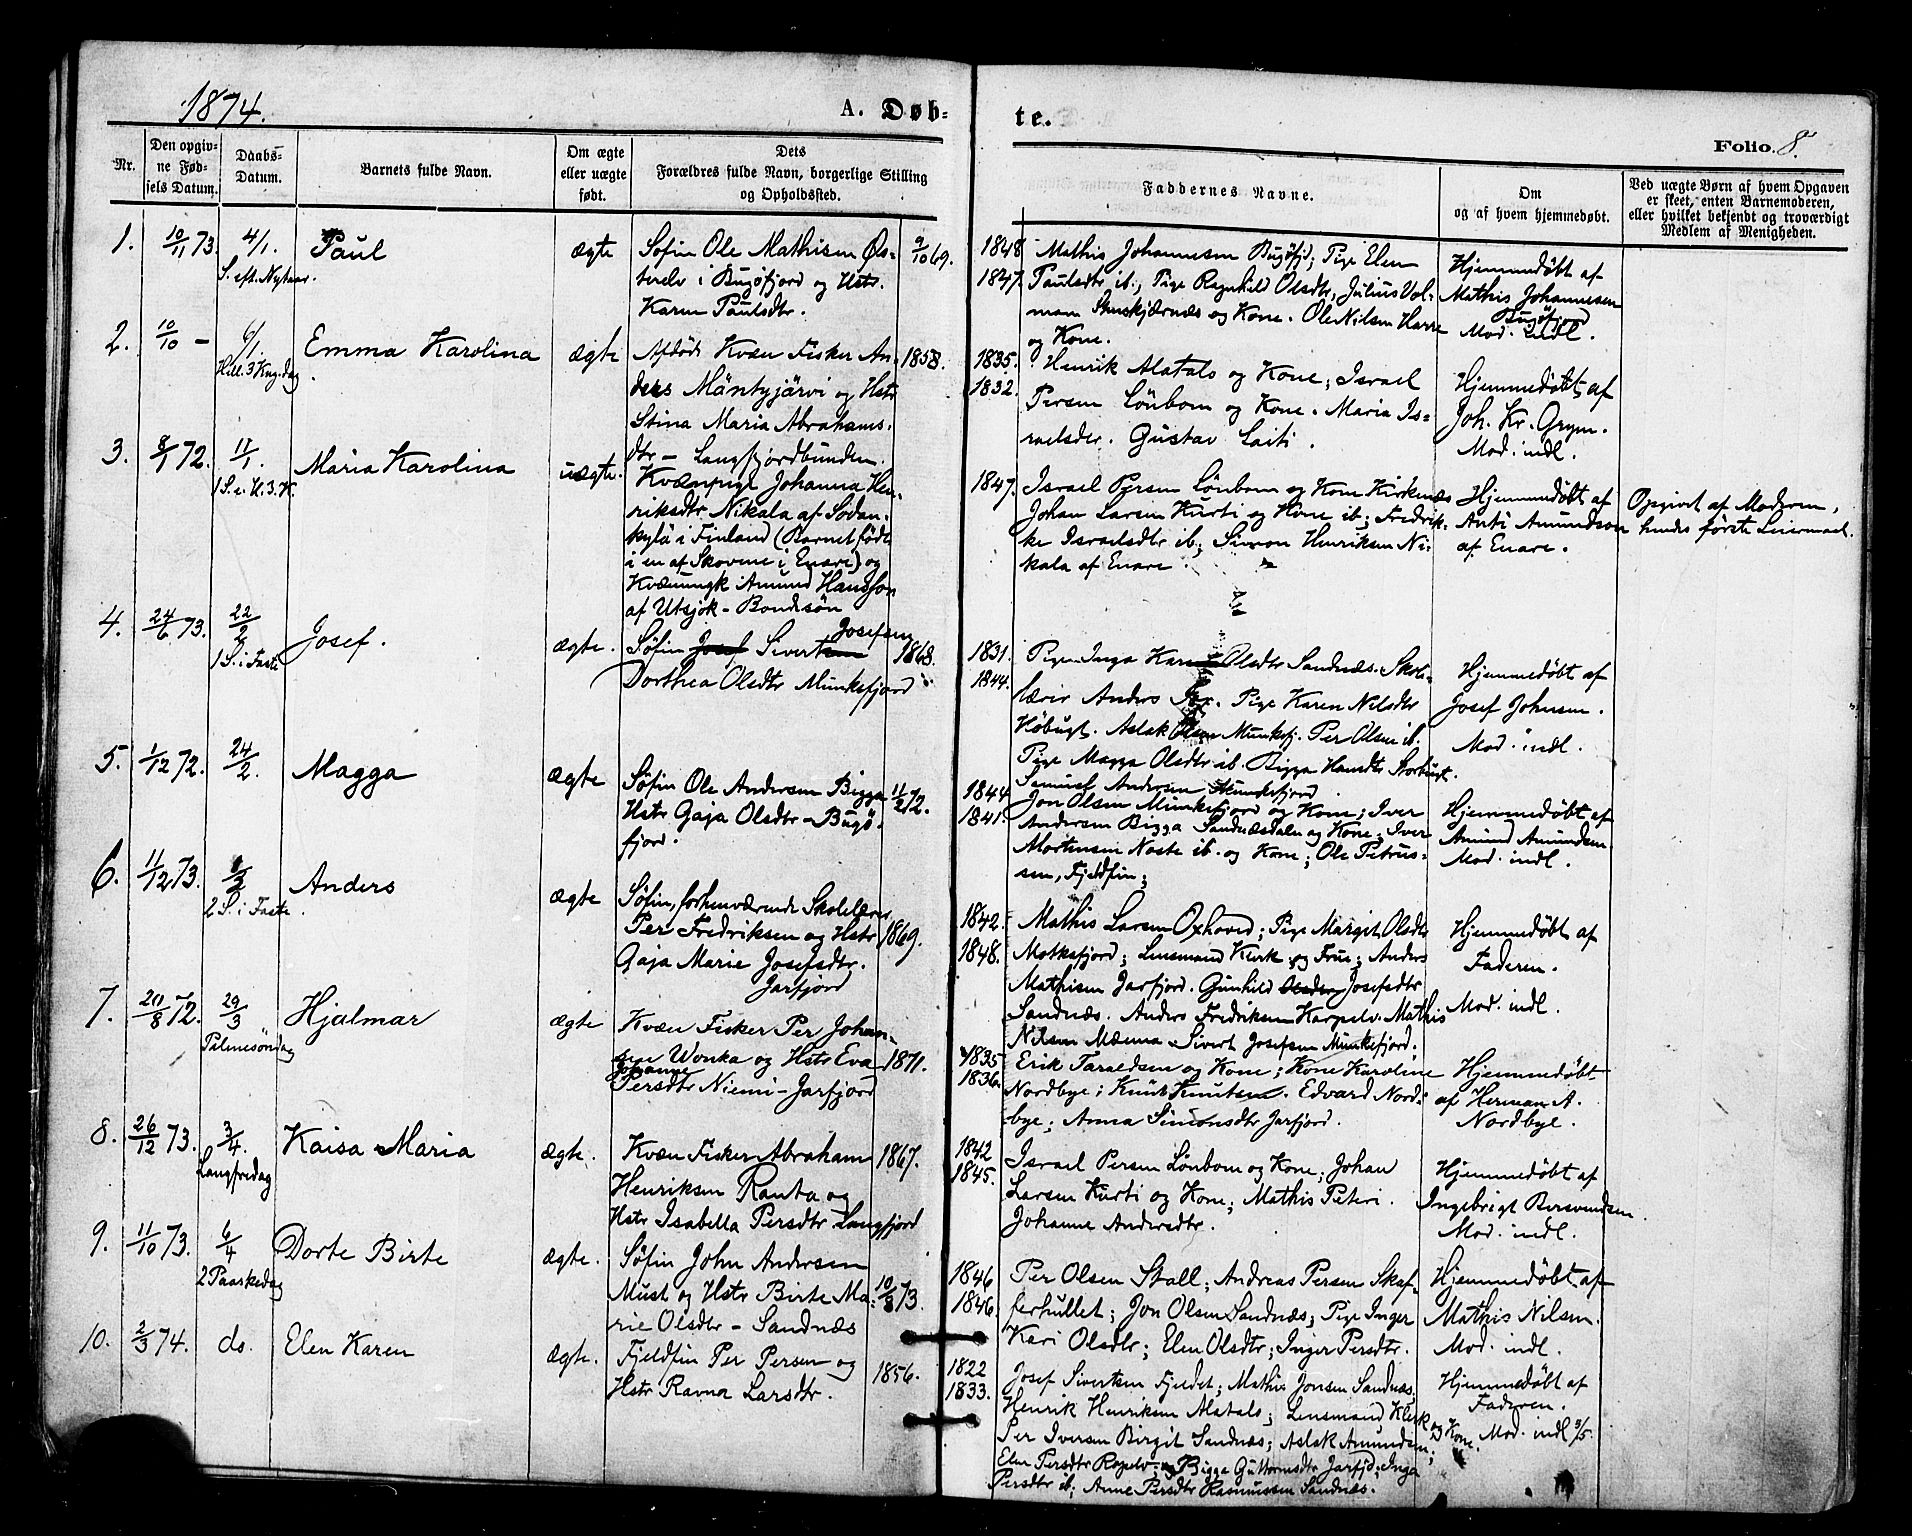 1874.
A. Døb-
te.
Folio. 8.
Nr.
Den opgiv-
ne Fød-
sels Datum.
Daabs-
Datum.
Barnets fulde Navn.
Om ægte
eller uægte
født.
Dets
Forældres fulde Navn, borgerlige Stilling
og Opholdssted.
Faddernes Navne.
Om
og af hvem hjemmedøbt.
Ved uægte Børn af hvem Opgaven
er skeet, enten Barnemoderen,
eller hvilket bekjendt og troværdigt
Medlem af Menigheden.
1. 10/11 73. 4/1.
S. eft. Nytaar.
Paul
ægte
Søfin Ole Mathisen Øs-
terelv i Bugøfjord og Hstr.
Karen Paulsdtr.
9/10 69.
1848
1847.
Mathis Johannesen Bugøfjd; Pige Elen
Paulsdtr ib; Pige Ragnhild Olsdtr, Julius Vol-
man Stenskjærnæs og Kone. Ole Nilsen Harre
og Kone.
Hjemmedøbt af
Mathis Johannesen
Bugøfjord
Mod. indl.
2. 10/10 - 6/1
Hell. 3 Kng. dag
Emma Karolina
ægte
Afdøde Kvæn Fisker An-
ders Mäntyjärvi og Hstr
Stina Maria Abrahams-
dtr - Langfjordbunden.
1858.
1835.
1832.
Henrik Alatalo og Kone; Israel
Persen Lönbom og Kone. Maria Is-
raelsdtr. Gustav Laiti.
Hjemmedøbt af
Joh. Kr. Grym.
Mod. indl.
3. 8/1 72. 11/1.
1 S. e. H. 3. K.
Maria Karolina
uægte.
Kvænpige Johanna Hen-
riksdtr Nikala af Sodan-
kylä i Finland (Barnet født
i en af Skovene i Enare) og
Kvænungk. Amund Hansson
af Utsjok - Bondesøn
1847.
Israel Persen Lönbom og Kone Kirkenæs
Johan Larsen Kurti og Kone ib; Fredrik-
ke Israelsdtr ib; Simon Henriksen Ni-
kala af Enare.
Hjemmedøbt af
Anti Amundson
af Enare.
Opgivet af Moderen,
hendes første Leiermaal.
4. 24/6 73. 22/2
1 S. i Faste
Josef.
ægte.
Josefsen
Søfin Josef Sivertsen
Dorthea Olsdtr Munkefjord
1868.
1831.
1844.
Pige Inga Karine Olsdtr Sandnæs. Skole-
lærer Anders . Pige Karen Nilsdtr
Høbugt. Aslak Olsen Munkefj. Per Olsen ib.
Pige Magga Olsdtr ib. Bigga Hansdtr Storbugt.
Samuel Andersen Munkefjord
Hjemmedøbt af
Josef Johnsen.
Mod. indl.
5. 1/12 72. 24/2.
Magga
ægte
Søfin Ole Andersen Bigga
Hstr Gaja Olsdtr - Bugø-
fjord.
11/2 72.
1844
1841.
Jon Olsen Munkefjord og Kone; Iver
Andersen Bigga Sandnæsdalen og Kone; Iver
Mortensen Noste ib. og Kone; Ole Petrus-
sen, Fjeldfin;
Hjemmedøbt af
Amund Amundsen.
Mod. indl.
6. 11/12 73. 1/3
2 S. i Faste.
Anders
ægte
Søfin, forhenværende Skolelærer
Per Fredriksen og Hstr
Gaja Marie Josefsdtr.
Jarfjord
1869.
1842.
1848.
Mathis Larsen Oxhoved; Pige Margit Olsdtr
Motkefjord; Lensmand Klerk og Frue; Anders
Mathisen Jarfjord. Gunhild Olsdtr Josefsdtr
Sandnæs. Anders Fredriksen Karpelv. Mathis
Nilsen Mæma. Sivert Josefsen Munkefjord.
Hjemmedøbt af
Faderen.
Mod. indl.
7. 20/8 72. 29/3
Palmesöndag
Hjalmar
ægte
Kvæn Fisker Per Johan-
nesen Wonka og Hstr Eva
Johanne
Persdtr Niemi - Jarfjord
1871.
1835
1836.
Erik Taraldsen og Kone; Kone Karoline
Nordbye; Knut Knutsen. Edvard Nord-
bye; Anna Simonsdtr Jarfjord.
Hjemmedøbt
af Herman A.
Nordbye.
8. 26/12 73. 3/4.
Langfredag
Kaisa Maria
ægte.
Kvæn Fisker Abraham
Henriksen Ranta og
Hstr Isabella Persdtr Langfjord
1867.
1842
1845.
Israel Persen Lönbom og Kone; Johan
Larsen Kurti og Kone; Mathis Peteri.
Johanne Andersdtr.
Hjemmedøbt af
Ingebrigt Bersvendsen.
Mod. indl.
9. 11/10 73. 6/4
2 Paaskedag
Dorte Birte
ægte.
Søfin John Andersen
Must og Hstr Birte Ma-
rie Olsdtr - Sandnæs
10/3 73.
1846
1846.
Per Olsen Stall; Andreas Persen Skaf-
ferhullet; Jon Olsen Sandnæs; Pige Inger
Kari Olsdtr; Elen Olsdtr; Inger Persdtr.
Hjemmedøbt af
Mathis Nilsen.
Mod. indl.
10. 2/3 74. do.
Elen Karen
ægte.
Fjeldfin Per Persen og
Hstr Ravna Larsdtr.
1856.
1822
1833.
Josef Sivertsen Fjeldet; Mathis Jonsen Sandnæs.
Henrik Henriksen Alatalo; Lensmand Klerk og Kone.
Per Iversen Birgit Sandnæs; Aslak Amundsen;
Elen Persdtr Ropelv; og Bigga Guttormsdtr Jarfjd; Inga
Persdtr ib; Anne Persdtr Rasmussen Sandnæs.
Hjemmedøbt af
Faderen.
Mod. indl 3/5.